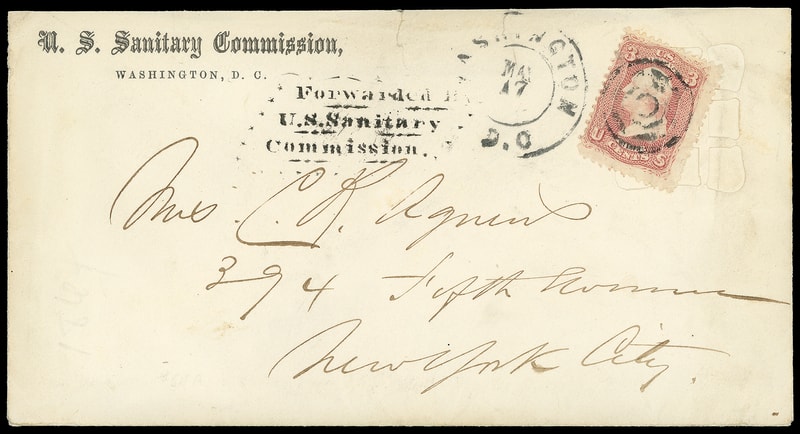 U. S. Sanitary Commission,
WASHINGTON, D. C.
Forwarded By
U.S. Sanitary
Commission.
WASHINGTON
MAY
17
D.C
3 U.S. 3
U CENTS S
Mrs. C. R. Agnew
394 Fifth Avenue
New York City.